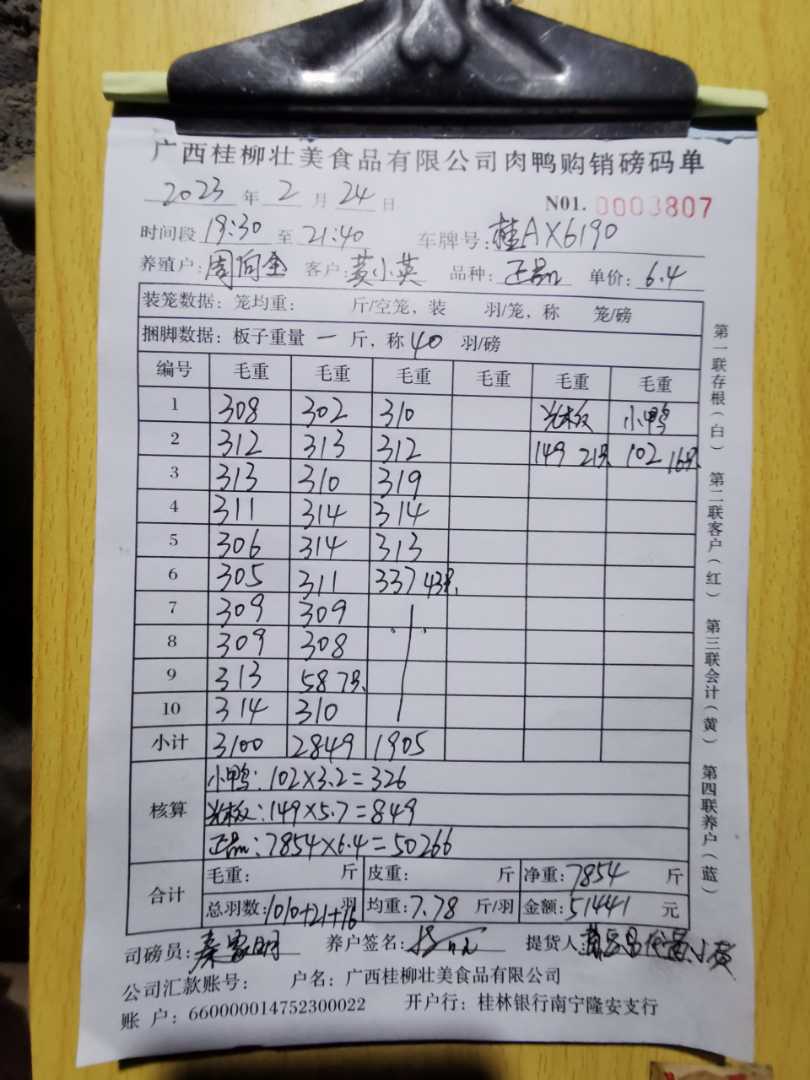 广西桂柳壮美食品有限公司肉鸭购销磅码单
2023 年 2 月 24 日 N01. 0003807
时间段 19:30 至 21:40 车牌号: 桂AX6190
养殖户: 周向金 客户: 黄小英 品种: 正品 单价: 6.4
装笼数据: 笼均重: 斤/空笼, 装 羽/笼, 称 笼/磅
捆脚数据: 板子重量 一 斤, 称 40 羽/磅
编号 毛重 毛重 毛重 毛重 毛重 毛重
1 308 302 310 光板 小鸭
2 312 313 312 149 21只 102 16只
3 313 310 319
4 311 314 314
5 306 314 313
6 305 311 337 43只
7 309 309
8 309 308
9 313 58 7只
10 314 310
小计 3100 2849 1905
核算
小鸭: 102×3.2=326
光板: 149×5.7=849
正品: 7854×6.4=50266
合计
毛重: 斤 皮重: 斤 净重: 7854 斤
总羽数: 1010+21+16 羽 均重: 7.78 斤/羽 金额: 51441 元
司磅员: 秦家明 养户签名: 提货人
公司汇款账号: 户名: 广西桂柳壮美食品有限公司
账 户: 660000014752300022 开户行: 桂林银行南宁隆安支行
第一联存根(白) 第二联客户(红) 第三联会计(黄) 第四联养户(蓝)